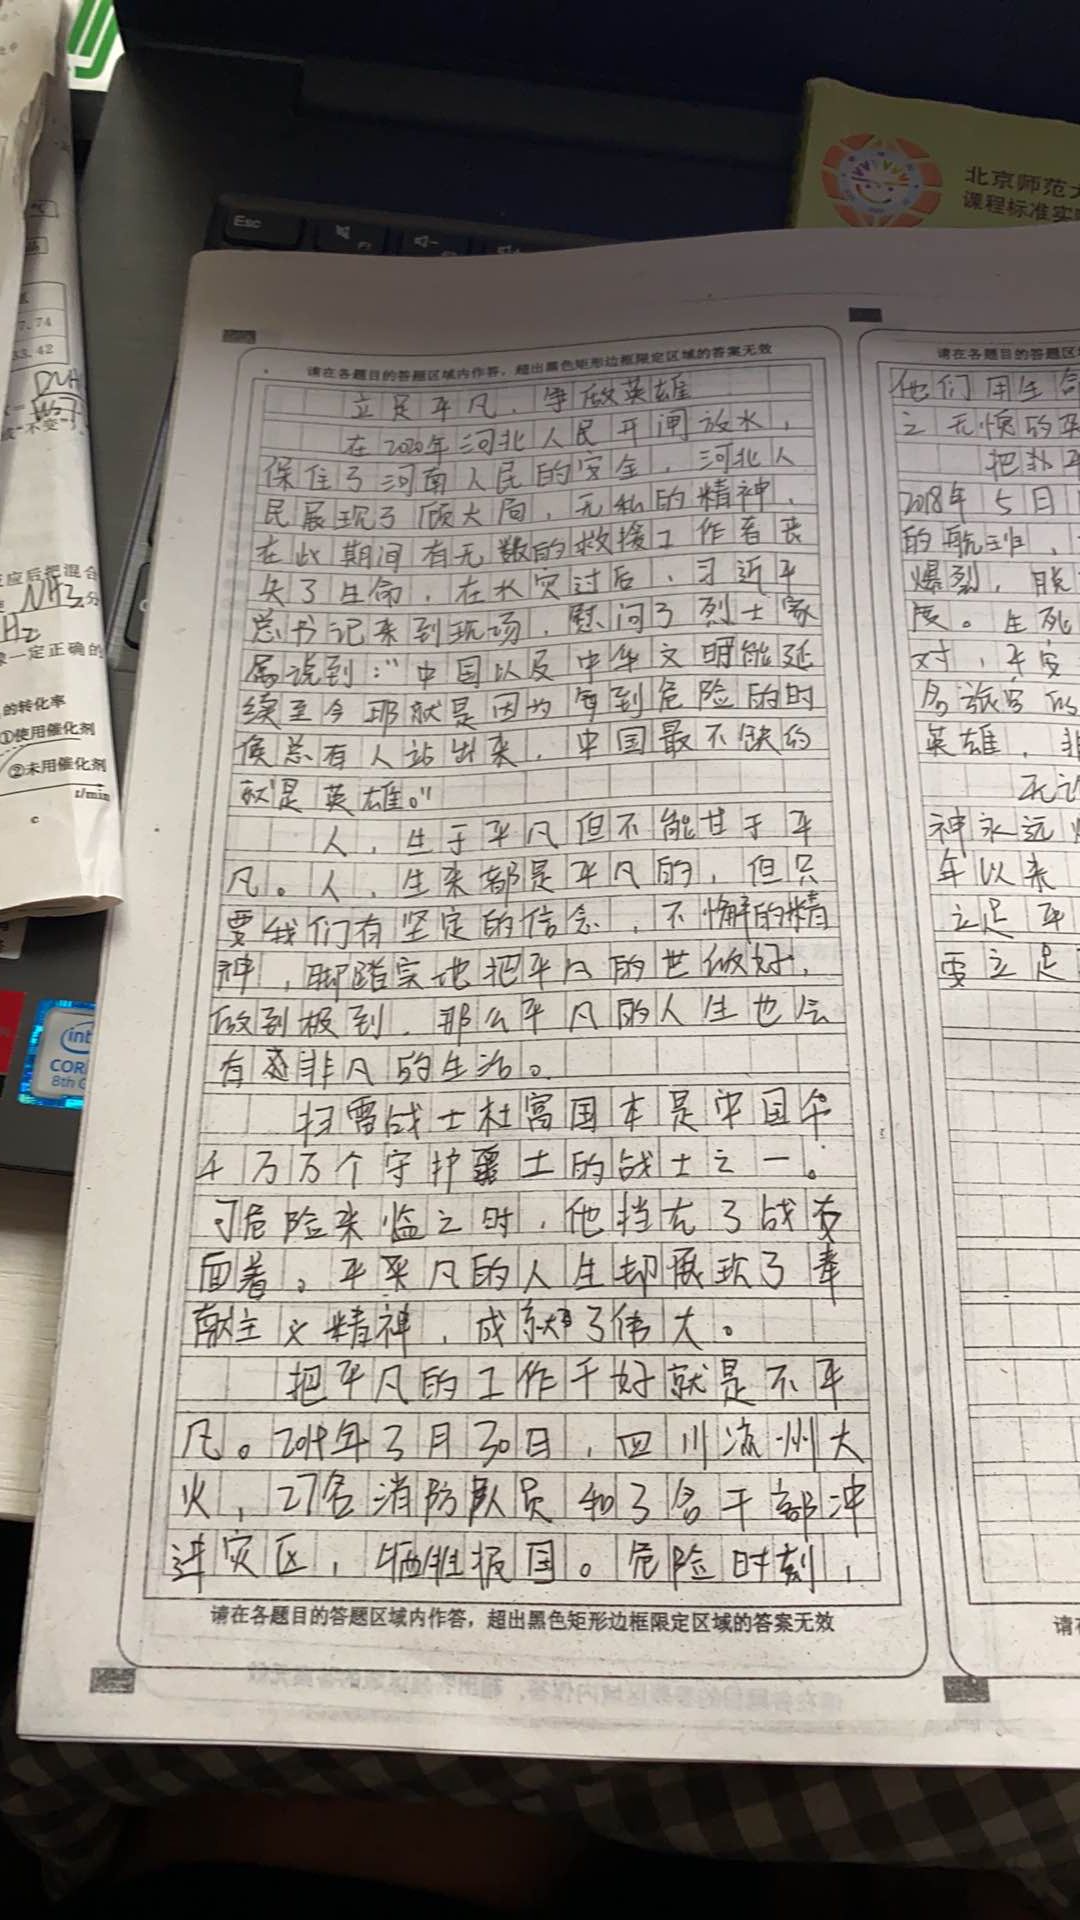 北京师范大
课程标准实
Esc
7.74
33.42
应后把混合
NH3分
H2
象一定正确的
的转化率
①使用催化剂
②未用催化剂
t/min
c
CORE
8th G
请在各题目的答题区域内作答，超出黑色矩形边框限定区域的答案无效
立足平凡，争做英雄
在2020年河北人民开闸放水，
保住了河南人民的安全，河北人
民展现了顾大局，无私的精神，
在此期间有无数的救援工作者丧
失了生命，在水灾过后，习近平
总书记来到现场，慰问了烈士家
属说到：“中国以及中华文明能延
续至今那就是因为每到危险的时
候总有人站出来，中国最不缺的
就是英雄。”
人，生于平凡但不能甘于平
凡。人，生来都是平凡的，但只
要我们有坚定的信念，不懈的精
神，脚踏实地把平凡的世做好，
做到极到，那么平凡的人生也会
有非凡的生活。
扫雷战士杜富国本是中国千
万万个守护疆土的战士之一。
危险来临之时，他挡在了战友
面着。平凡的人生却展现了奉
献主义精神，成就了伟大。
把平凡的工作干好就是不平
凡。2019年3月30日，四川凉州大
火，27名消防队员和3名干部冲
进灾区，牺牲报国。危险时刻，
请在各题目的答题区域内作答，超出黑色矩形边框限定区域的答案无效
请在各题目的答题区
他们用生命
之无愧的
把
2018年5日
的航班，
爆裂，脱
度。生死
对，平安
名
英雄，非
无论
神永远
年以来
立足平
要立足
请